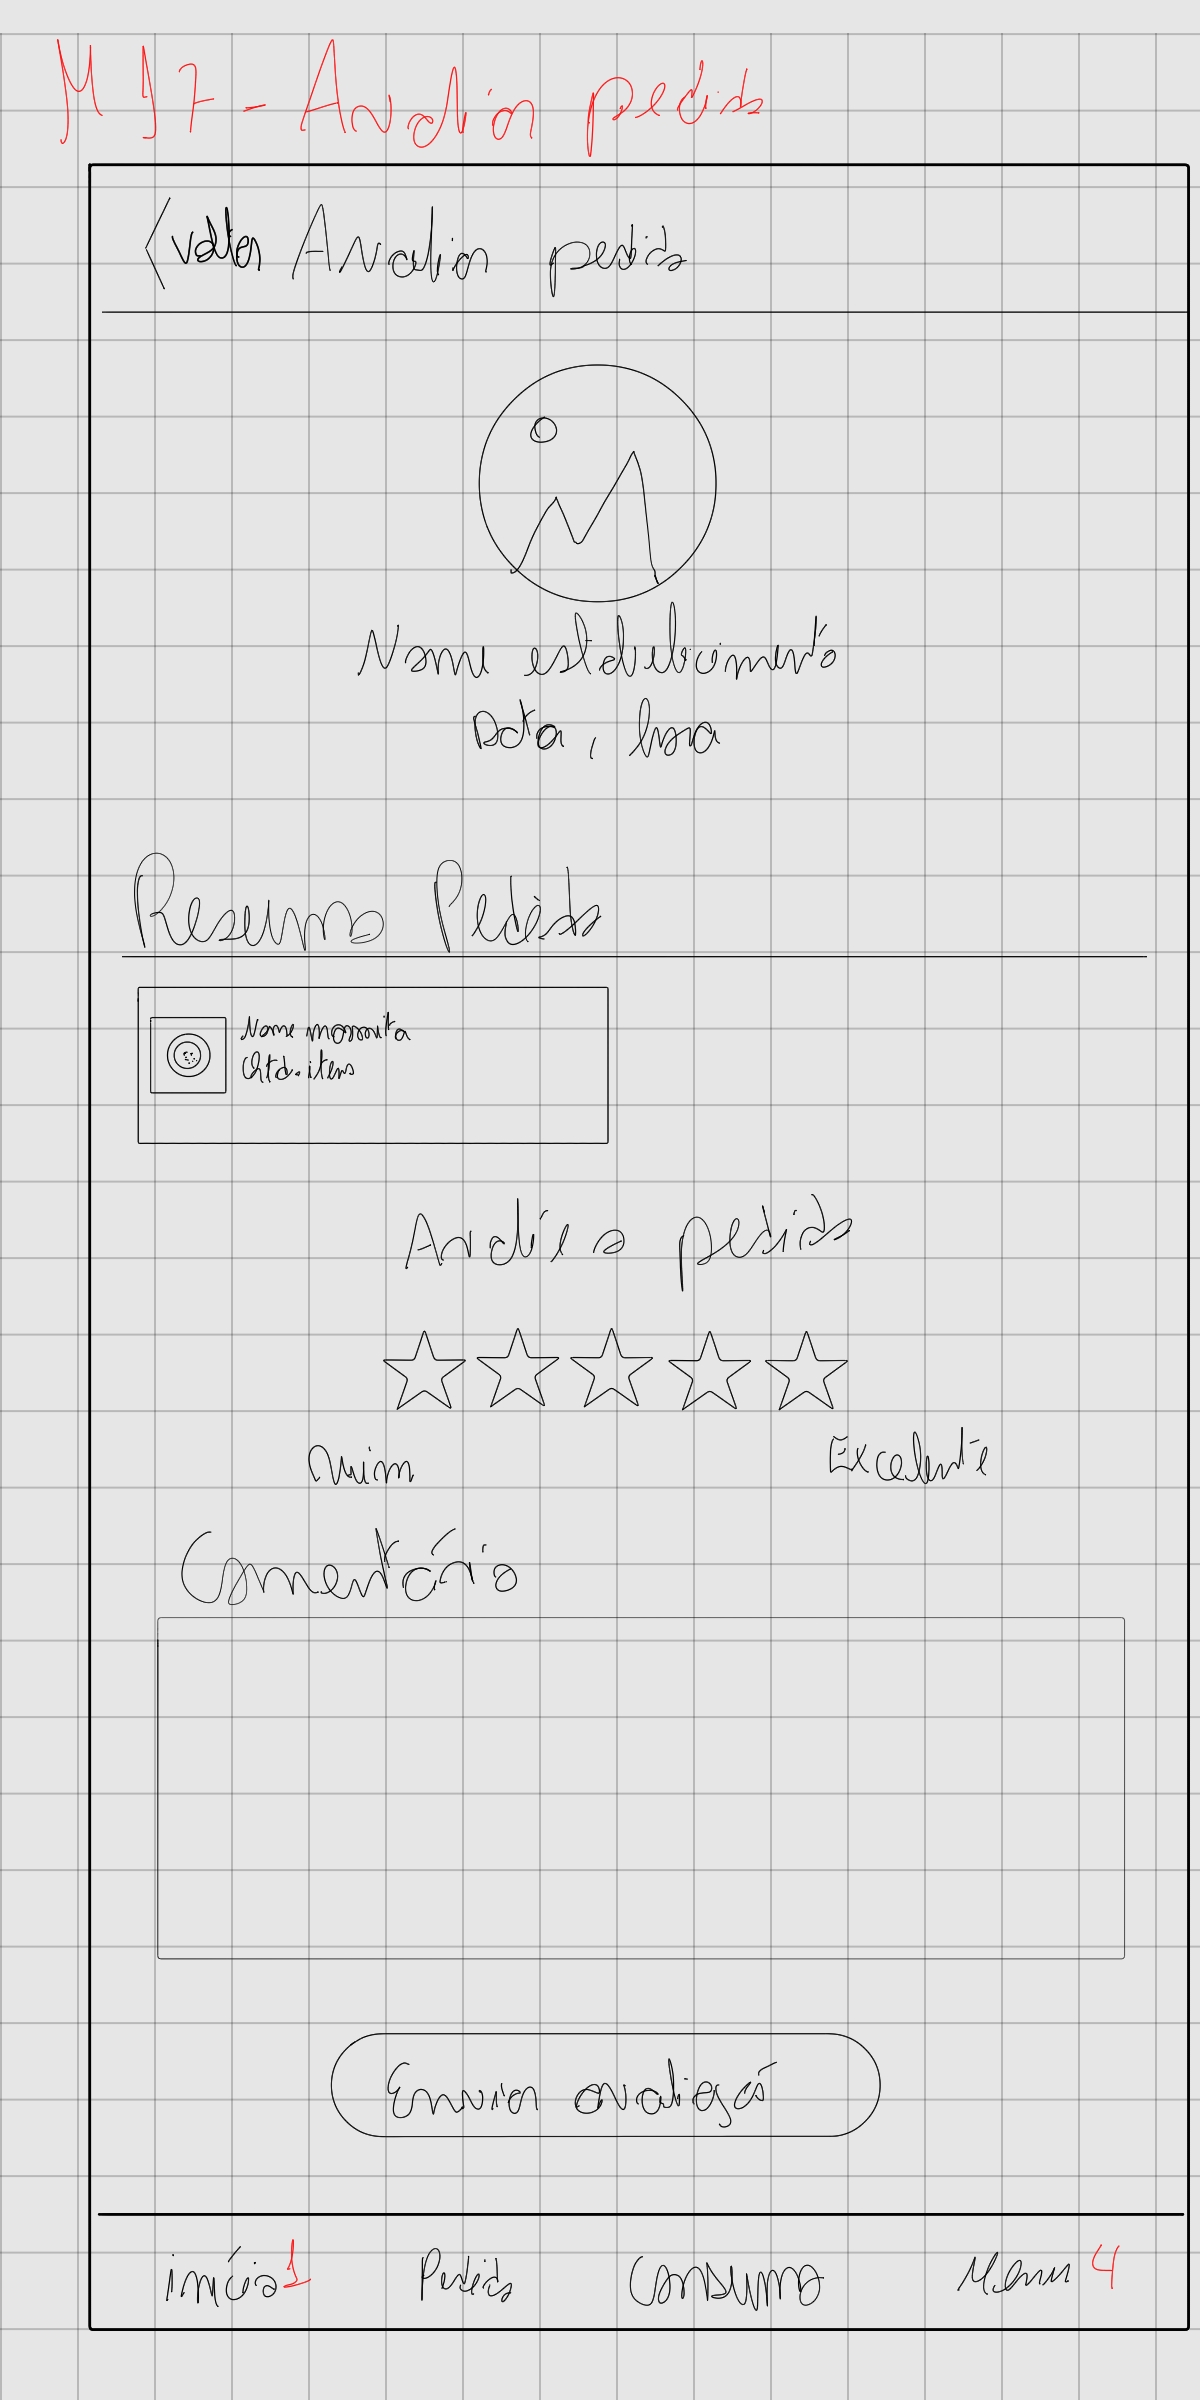 M17 - Avaliar pedido
< voltar Avaliar pedido
Nome estabelecimento
Data, hora
Resumo Pedido
Nome marmita
Qtd. itens
Avalie o pedido
ruim Excelente
Comentário
Enviar avaliação
início 1 Pedido Consumo Menu 4